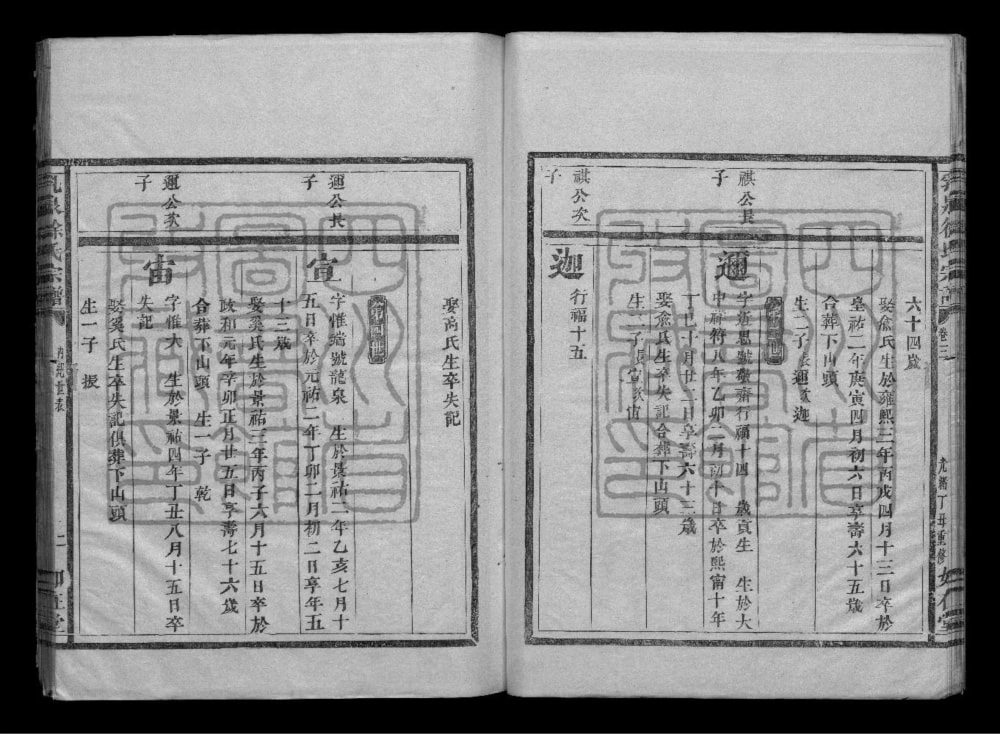 六十四歲
娶俞氏生於雍熙三年丙戌四月十三日卒於
皇祐二年庚寅四月初六日享壽六十五歲
合葬下山頭
生二子長邇次迦
祺公長
子
邇
字近思號敬齋行福十四 歲貢生 生於大
中祥符八年乙卯二月初十日卒於熙甯十年
丁巳十月廿二日享壽六十三歲
娶俞氏生卒失記合葬下山頭
生二子長宣次
祺公次
子
迦
行福十五
娶高氏生卒失記
邇公長
子
宣
字惟端號龍泉 生於景祐二年乙亥七月十
五日卒於元祐二年丁卯二月初二日享年五
十三歲
娶奚氏生於景祐三年丙子六月十五日卒於
政和元年辛卯正月廿五日享壽七十六歲
合葬下山頭 生一子 乾
邇公次
子
字惟大 生於景祐四年丁丑八月十五日卒
失記
娶奚氏生卒失記俱葬下山頭
生一子 振
徐氏宗譜
卷二
光緒丁
重修
內紀世表
二